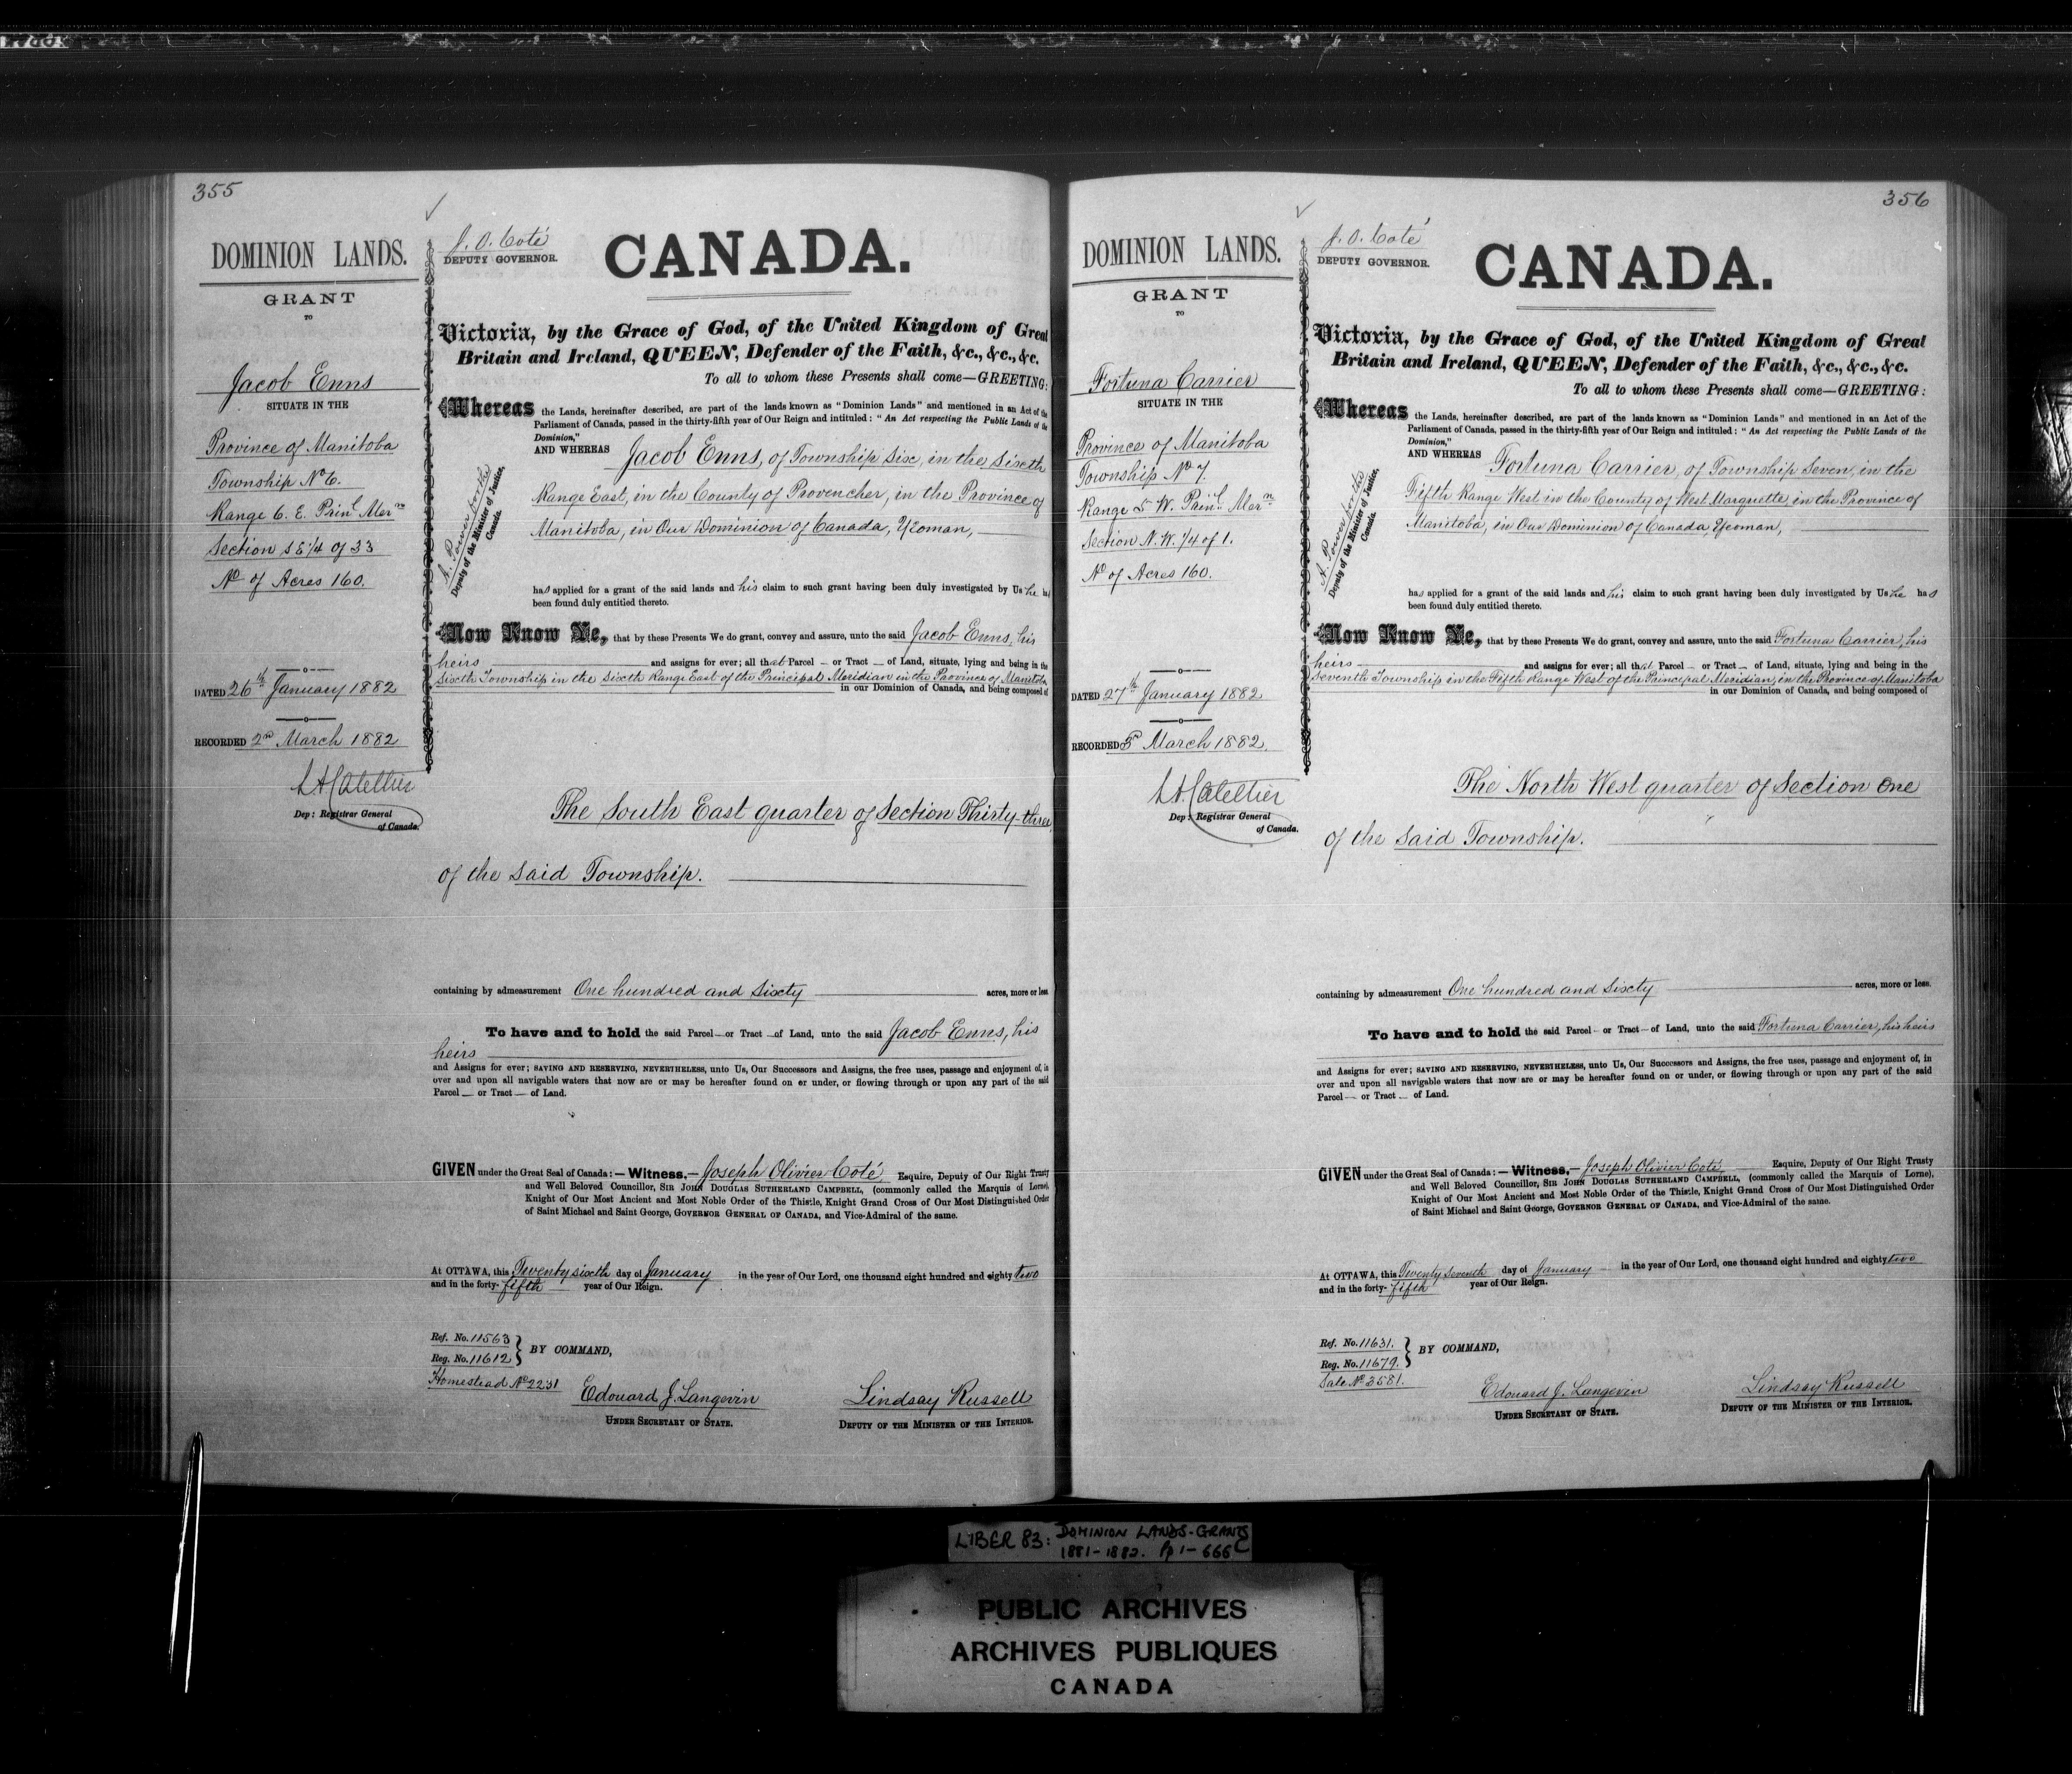 355
DOMINION LANDS.
GRANT
TO
Jacob Enns
SITUATE IN THE
Province of Manitoba
Township No 6.
Range 6. E. Prinl Mern
Section S E 1/4 of 33
No of Acres 160.
DATED 26th January 1882
RECORDED 2nd March 1882
Dep: Registrar General
of Canada.
J. O. Coté
DEPUTY GOVERNOR.
CANADA.
Victoria, by the Grace of God, of the United Kingdom of Great
Britain and Ireland, QUEEN, Defender of the Faith, &c., &c., &c.
To all to whom these Presents shall come—GREETING:
A. Power for the
Deputy of the Minister of Justice,
Canada.
Whereas the Lands, hereinafter described, are part of the lands known as "Dominion Lands" and mentioned in an Act of the
Parliament of Canada, passed in the thirty-fifth year of Our Reign and intituled: "An Act respecting the Public Lands of the
Dominion,"
AND WHEREAS Jacob Enns, of Township Six, in the Sixth
Range East, in the County of Provencher, in the Province of
Manitoba, in Our Dominion of Canada, Yeoman,
has applied for a grant of the said lands and his claim to such grant having been duly investigated by Us he has
been found duly entitled thereto.
Now Know Ye, that by these Presents We do grant, convey and assure, unto the said Jacob Enns, his
heirs and assigns for ever; all that Parcel — or Tract — of Land, situate, lying and being in the
Sixth Township in the Sixth Range East of the Principal Meridian in the Province of Manitoba
in our Dominion of Canada, and being composed of
The South East quarter of Section Thirty-three
of the said Township.
containing by admeasurement One hundred and Sixty acres, more or less
To have and to hold the said Parcel—or Tract—of Land, unto the said Jacob Enns, his
heirs
and Assigns for ever; SAVING AND RESERVING, NEVERTHELESS, unto Us, Our Successors and Assigns, the free uses, passage and enjoyment of, in
over and upon all navigable waters that now are or may be hereafter found on or under, or flowing through or upon any part of the said
Parcel — or Tract — of Land.
GIVEN under the Great Seal of Canada:—Witness,—Joseph Olivier Coté, Esquire, Deputy of Our Right Trusty
and Well Beloved Councillor, SIR JOHN DOUGLAS SUTHERLAND CAMPBELL, (commonly called the Marquis of Lorne),
Knight of Our Most Ancient and Most Noble Order of the Thistle, Knight Grand Cross of Our Most Distinguished Order
of Saint Michael and Saint George, GOVERNOR GENERAL OF CANADA, and Vice-Admiral of the same.
At OTTAWA, this Twenty sixth day of January in the year of Our Lord, one thousand eight hundred and eighty two
and in the forty-fifth year of Our Reign.
Ref. No. 11563
Reg. No. 11612
BY COMMAND,
Homestead No 2231
Edouard J. Langevin
UNDER SECRETARY OF STATE.
Lindsay Russell
DEPUTY OF THE MINISTER OF THE INTERIOR.
356
DOMINION LANDS.
GRANT
TO
Fortuna Carrier
SITUATE IN THE
Province of Manitoba
Township No 7.
Range 5 W. Prinl Mern
Section N. W. 1/4 of 1.
No of Acres 160.
DATED 27th January 1882
RECORDED March 1882.
Dep: Registrar General
of Canada.
J. O. Coté
DEPUTY GOVERNOR.
CANADA.
Victoria, by the Grace of God, of the United Kingdom of Great
Britain and Ireland, QUEEN, Defender of the Faith, &c., &c., &c.
To all to whom these Presents shall come—GREETING:
A. Power for the
Deputy of the Minister of Justice,
Canada.
Whereas the Lands, hereinafter described, are part of the lands known as "Dominion Lands" and mentioned in an Act of the
Parliament of Canada, passed in the thirty-fifth year of Our Reign and intituled: "An Act respecting the Public Lands of the
Dominion,"
AND WHEREAS Fortuna Carrier, of Township Seven, in the
Fifth Range West in the County of West Marquette, in the Province of
Manitoba, in Our Dominion of Canada, Yeoman,
has applied for a grant of the said lands and his claim to such grant having been duly investigated by Us he has
been found duly entitled thereto.
Now Know Ye, that by these Presents We do grant, convey and assure, unto the said Fortuna Carrier, his
heirs and assigns for ever; all that Parcel — or Tract — of Land, situate, lying and being in the
Seventh Township in the Fifth Range West of the Principal Meridian, in the Province of Manitoba
in our Dominion of Canada, and being composed of
The North West quarter of Section One
of the said Township.
containing by admeasurement One hundred and Sixty acres, more or less.
To have and to hold the said Parcel—or Tract—of Land, unto the said Fortuna Carrier, his heirs
and Assigns for ever; SAVING AND RESERVING, NEVERTHELESS, unto Us, Our Successors and Assigns, the free uses, passage and enjoyment of, in
over and upon all navigable waters that now are or may be hereafter found on or under, or flowing through or upon any part of the said
Parcel — or Tract — of Land.
GIVEN under the Great Seal of Canada:—Witness,—Joseph Olivier Coté Esquire, Deputy of Our Right Trusty
and Well Beloved Councillor, SIR JOHN DOUGLAS SUTHERLAND CAMPBELL, (commonly called the Marquis of Lorne),
Knight of Our Most Ancient and Most Noble Order of the Thistle, Knight Grand Cross of Our Most Distinguished Order
of Saint Michael and Saint George, GOVERNOR GENERAL OF CANADA, and Vice-Admiral of the same.
At OTTAWA, this Twenty Seventh day of January in the year of Our Lord, one thousand eight hundred and eighty two
and in the forty-fifth year of Our Reign.
Ref. No. 11631.
Reg. No. 11679.
BY COMMAND,
Sale No 3581.
Edouard J. Langevin
UNDER SECRETARY OF STATE.
Lindsay Russell
DEPUTY OF THE MINISTER OF THE INTERIOR.
LIBER 83: DOMINION LANDS-GRANTS
1881-1882. Pp 1-666
PUBLIC ARCHIVES
ARCHIVES PUBLIQUES
CANADA